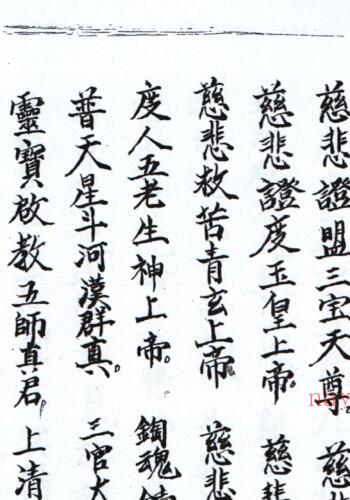 慈悲證盟三宝天尊。慈
慈悲證度玉皇上帝。慈悲
慈悲救苦青玄上帝。慈悲
度人五老生神上帝。
普天星斗河漢群真。三官大
靈寶啟教五師真君。上清